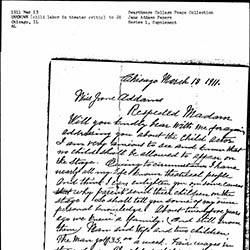 1911 Mar 13
UNKNOWN (child labor in theater critic) to JA
Chicago, IL
AL
Swarthmore College Peace Collection
Jane Addams Papers
Series 1, Supplement
Chicago March 13 1911.
Miss Jane Addams
Respected Madam
Will you kindly bear with me for again
addressing you about the child actor
I am very anxious to see and know that
no child should be allowed to appear on
the stage.
nearly all my life known theatrical people
and think I can enlighten you on some causes
why parents put their children on the
stage I do shall tell you some of my own
personal knowledge! About two years
ago we knew a family, (and still know
them) Man and wife and two children
The Man gets 35.00 a week.